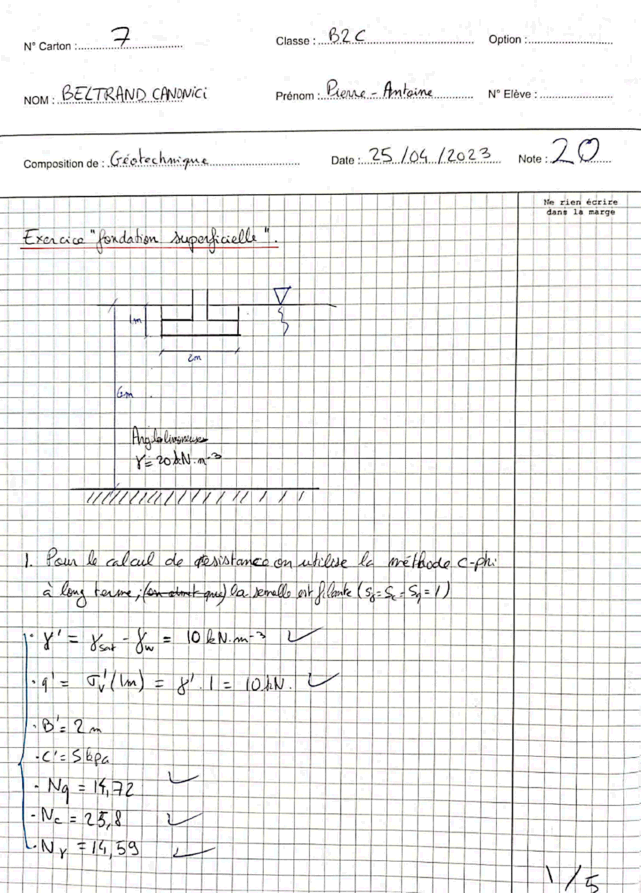 N° Carton : 7 Classe : B2C Option :
NOM : BELTRAND CANONICI Prénom : Pierre - Antoine N° Elève :
Composition de : Géotechnique Date : 25/04/2023 Note : 20
Ne rien écrire
dans la marge
Exercice "fondation superficielle".
1m
2m
6m
Argile limoneuse
γ = 20 kN.m⁻³
1. Pour le calcul de résistance on utilise la méthode C-phi
à long terme, (on admet que) la semelle est filante (Sγ=Sc=Sq=1)
• γ' = γsat - γw = 10 kN.m⁻³
• q' = σv'(1m) = γ'.1 = 10kN.
• B' = 2m
• C' = 5kpa
- Nq = 14,72
- Nc = 25,8
- Nγ = 14,59
1/5